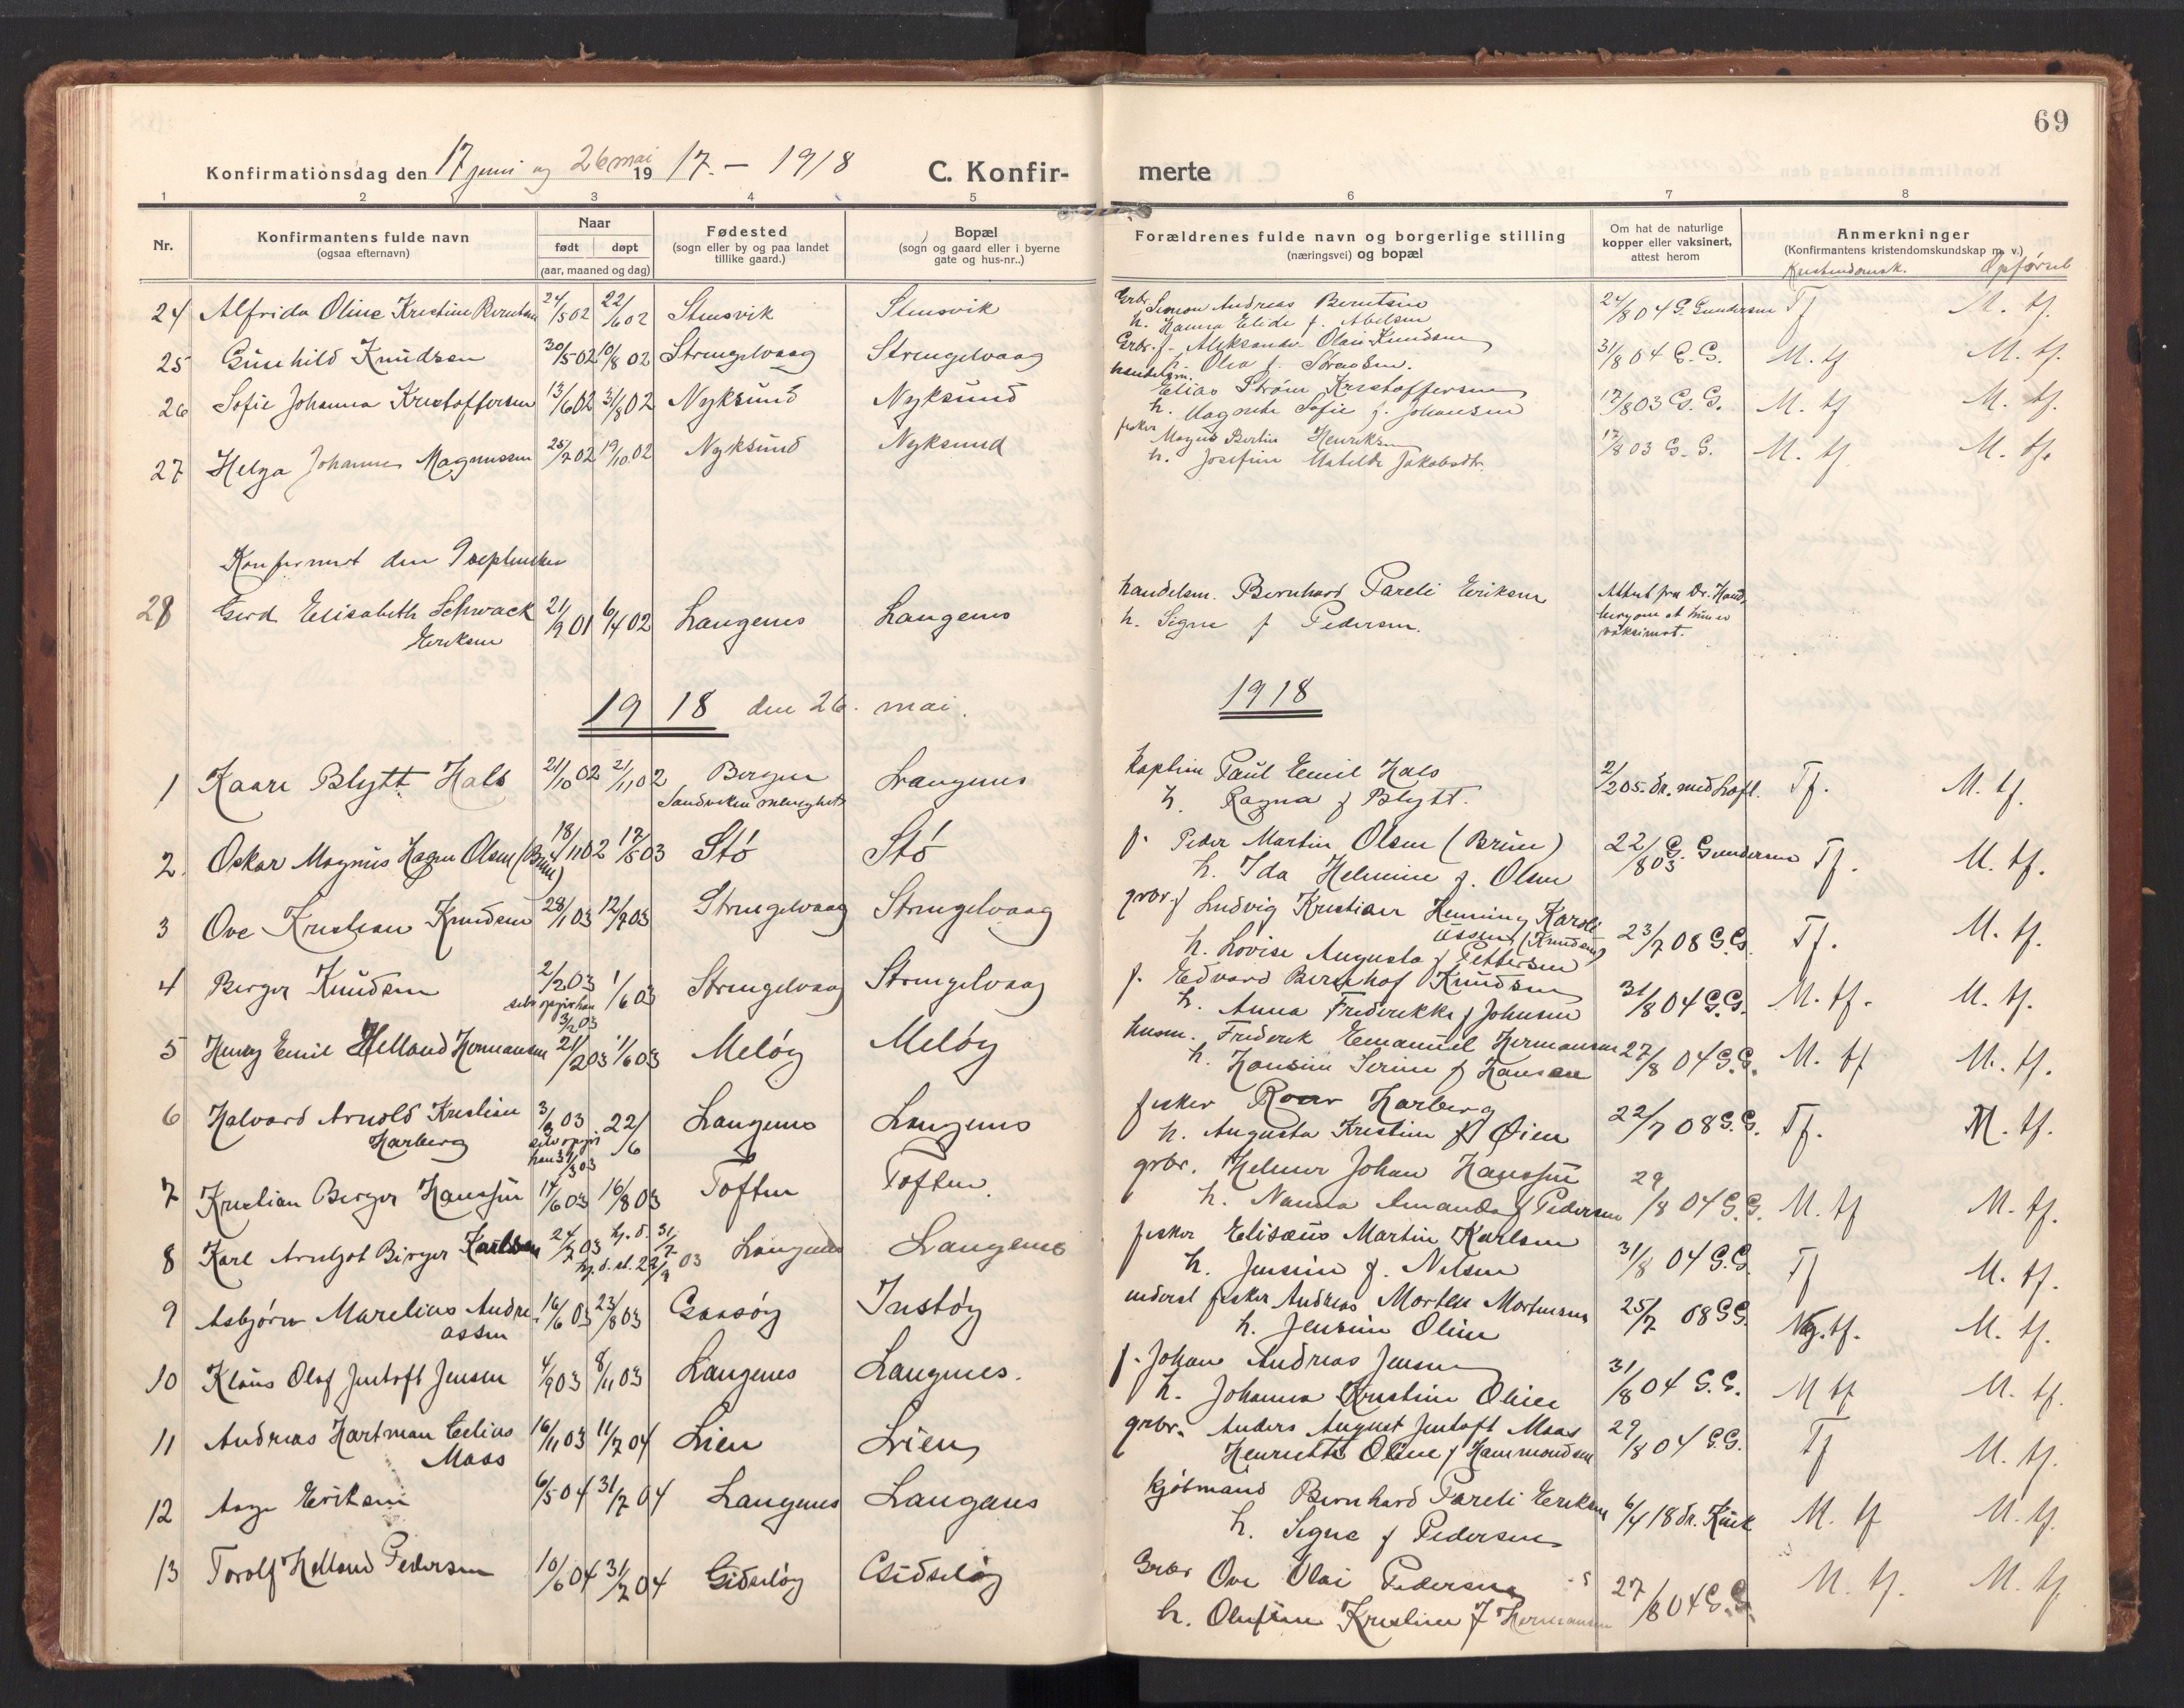 69
Konfirmationsdag den 17 juni og 26 mai 1917. – 1918
C. Konfirmerte
1 2 3 4 5 6 7 8
Nr.
Konfirmantens fulde navn
(ogsaa efternavn)
Naar
født døpt
(aar, maaned og dag)
Fødested
(sogn eller by og paa landet
tillike gaard.)
Bopæl
(sogn og gaard eller i byerne
gate og hus-nr..)
Forældrenes fulde navn og borgerlige stilling
(næringsvei) og bopæl
Om hat de naturlige
kopper eller vaksinert,
attest herom
Anmerkninger
(Konfirmantens kristendomskundskap m. v.)
Kristendomsk. Opførsel
24 Alfrida Oline Kristine Berntsen 24/5 02 22/6 02 Stensvik Stensvik Grbr. Simon Andreas Berntsen 24/8 04 G. Gundersen Tf M. tf.
h. Hanna Elide f. Abelsen
25 Gunhild Knudsen 30/5 02 10/8 02 Strengelvaag Strengelvaag Grbr. f. Aleksander Olai Knudsen 31/8 04 G. G. M. tf M. tf.
h. Olea f. Sørensen.
26 Sofie Johanna Kristoffersen 13/6 02 31/8 02 Nyksund Nyksund handelsm. Elias Strøm Kristoffersen 17/8 03 G. G. M. tf M. tf.
h. Magnhe Sofie f. Johansen
27 Helga Johanne Magnussen 25/7 02 19/10 02 Nyksund Nyksund fisker Magnus Bertin Henriksen 17/8 03 G. G. M. tf M. tf.
h. Josefine Matilde Jakobsdtr.
Konfirmert den 9 september
28 Gerd Elisabeth Schwack 21/9 01 6/4 02 Langenes Langenes handelsm. Bernhard Pareli Eriksen Attest fra Dr. 
Eriksen h. Signe f Pedersen. om at hun er
vaksinert.
1918 den 26. mai.
1918
1 Kaare Blytt Hals 21/10 02 21/11 02 Bergen Langenes kaptein Paul Emil Hals 2/2 05. dr. med. Tf. M. tf.
Sandviken menighet h. Ragna f Blytt.
2. Oskar Magnus Hagen Olsen (Brun) 18/11 02 17/5 03 Stø Stø f. Peder Martin Olsen (Brun) 22/8 03 G. Gundersen Tf. M. tf.
h. Ida Helmine f. Olsen
3 Ove Kristian Knudsen 28/1 03 12/7 03 Strengelvaag Strengelvaag grbr. f Ludvig Kristian Henning Karoli 23/7 08 G.G. Tf. M. tf.
(Knudsen)
h. Lovise Augusta f Pettersen
4 Berger Knudsen 2/2 03 1/6 03 Strengelvaag Strengelvaag f. Edvard Bernhof Knudsen 31/8 04 G.G. M. tf. M. tf.
selv opgir han 3/2 03 h. Anna Frederikke f Johnsen
5 Henry Emil Helland Hermansen 21/2 03 1/6 03 Meløy Meløy husm. Frederik Emanuel Hermansen 27/8 04 G.G. M. tf M. tf.
h. Hansine Serine f Hansen
6 Halvard Arnold Kristian 3/3 03 22/6 Langenes Langenes fisker Roar Harberg 22/7 08 G.G. Tf. M. tf.
Harberg selv opgir han 31/3 03 h. Augusta Kristine f Øien
7 Kristian Berger Hanssen 14/6 03 16/8 03 Toften Toften. grbr. Helmer Johan Hanssen 29/8 04 G.G. M. tf M. tf.
h. Nanna Amanda f Pedersen
8 Karl Arnljot Birger Karlsen 24/7 03 hj. d. 31/7 Langenes Langenes fisker Elisæus Martin Karlsen 31/8 04 G.G. Tf M. tf.
03 h. Jensine f. Nilsen
9 Asbjørn Marelius Andre- 16/6 03 23/8 03 Gaasøy Instøy inderst fisker Andreas Morten Mortensen 25/7 08 G.G. Ng. tf. M. tf.
assen h. Jensine Oline
10 Klaus Olaf Jentoft Jensen 4/9 03 8/11 03 Langenes Langenes. f. Johan Andreas Jensen 31/8 04 G.G. M tf M. tf.
h. Johanna Kristine Olsen
11 Andreas Hartman Celius 16/11 03 11/7 04 Lien Lien grbr. Anders August Jentoft Maas 29/8 04 G.G. Tf M. tf.
Maas Henriette Oline f Hammondsen
12 Aage Eriksen 6/5 04 31/7 04 Langenes Langenes kjøbmand Bernhard Pareli Eriksen 6/4 18 dr. M. tf M. tf.
h. Signe f Pedersen
13 Torolf Helland Pedersen 10/6 04 31/7 04 Gidsløy Gidsløy Grbr Ove Olai Pedersen 27/8 04 G.G. M. tf. M. tf
h. Olufine Kristine f Hermansen